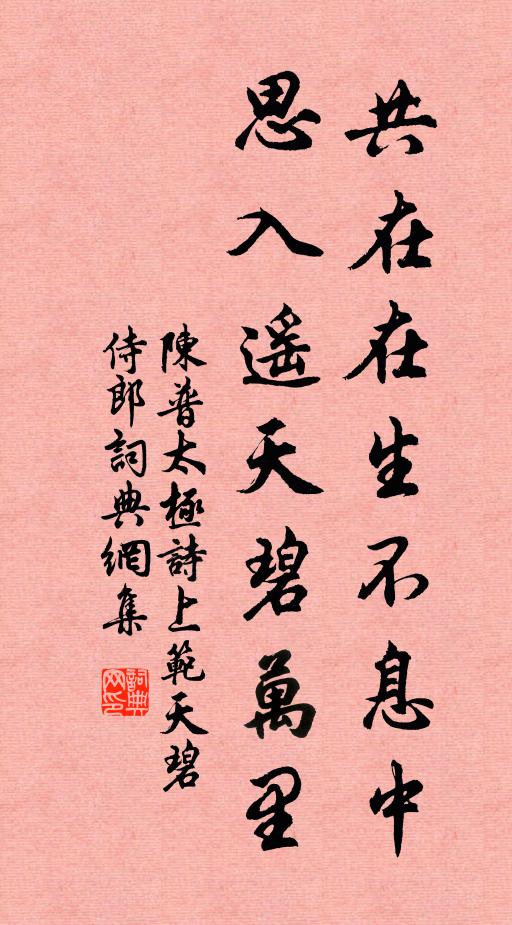 共在在生不息中
思入遥天碧萬里
陳普太極詩上範天碧
侍郎詞典網集
詞典网印